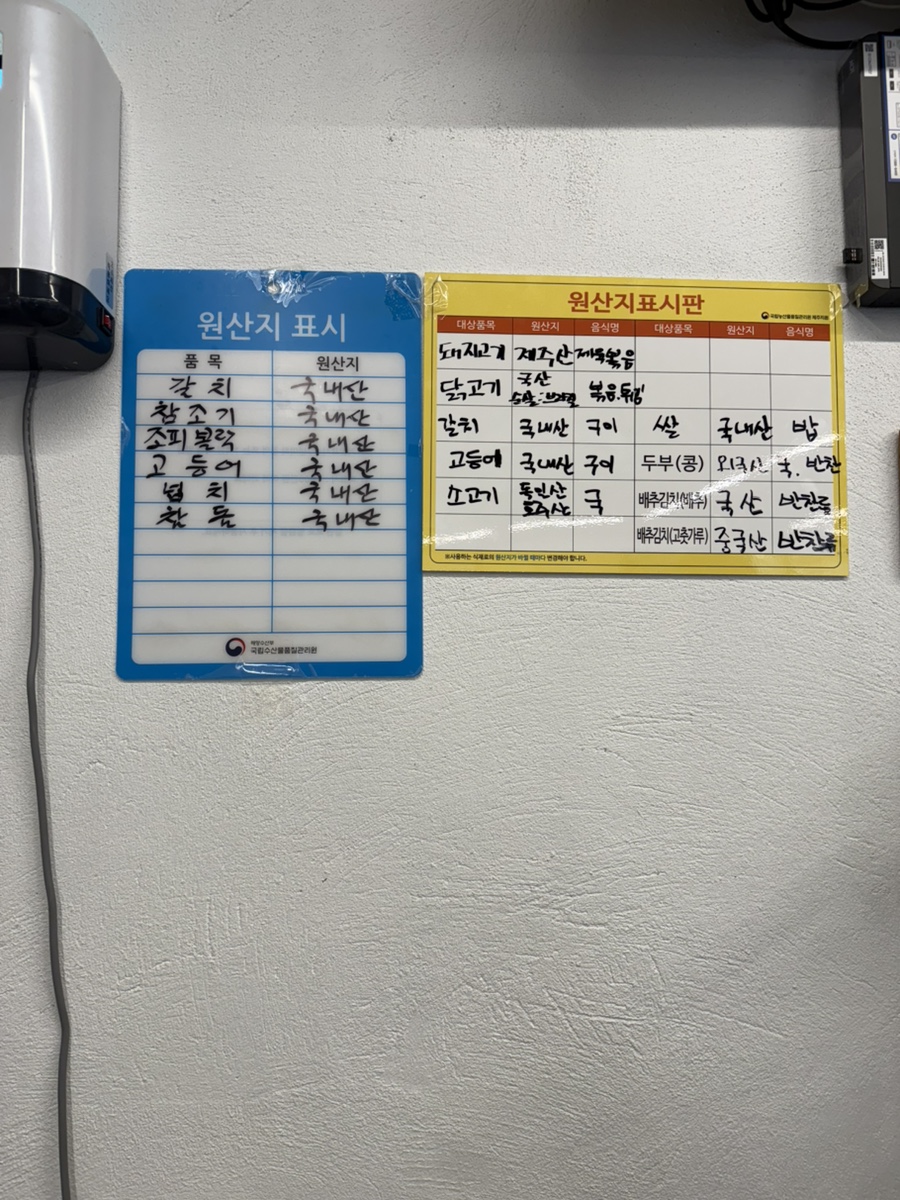 원산지 표시
품 목 원산지
갈 치 국내산
참 조 기 국내산
조피볼락 국내산
고 등 어 국내산
넙 치 국내산
참 돔 국내산
해양수산부
국립수산물품질관리원
원산지표시판
국립농산물품질관리원 제주지원
대상품목 원산지 음식명 대상품목 원산지 음식명
돼지고기 제주산 제육볶음
닭고기 국산 볶음.튀김
갈치 국내산 구이 쌀 국내산 밥
고등어 국내산 구이 두부(콩) 외국산 국. 반찬
소고기 호주산 국 배추김치(배추) 국산 반찬류
배추김치(고춧가루) 중국산 반찬류
※사용하는 식재료의 원산지가 바뀔 때마다 변경해야 합니다.